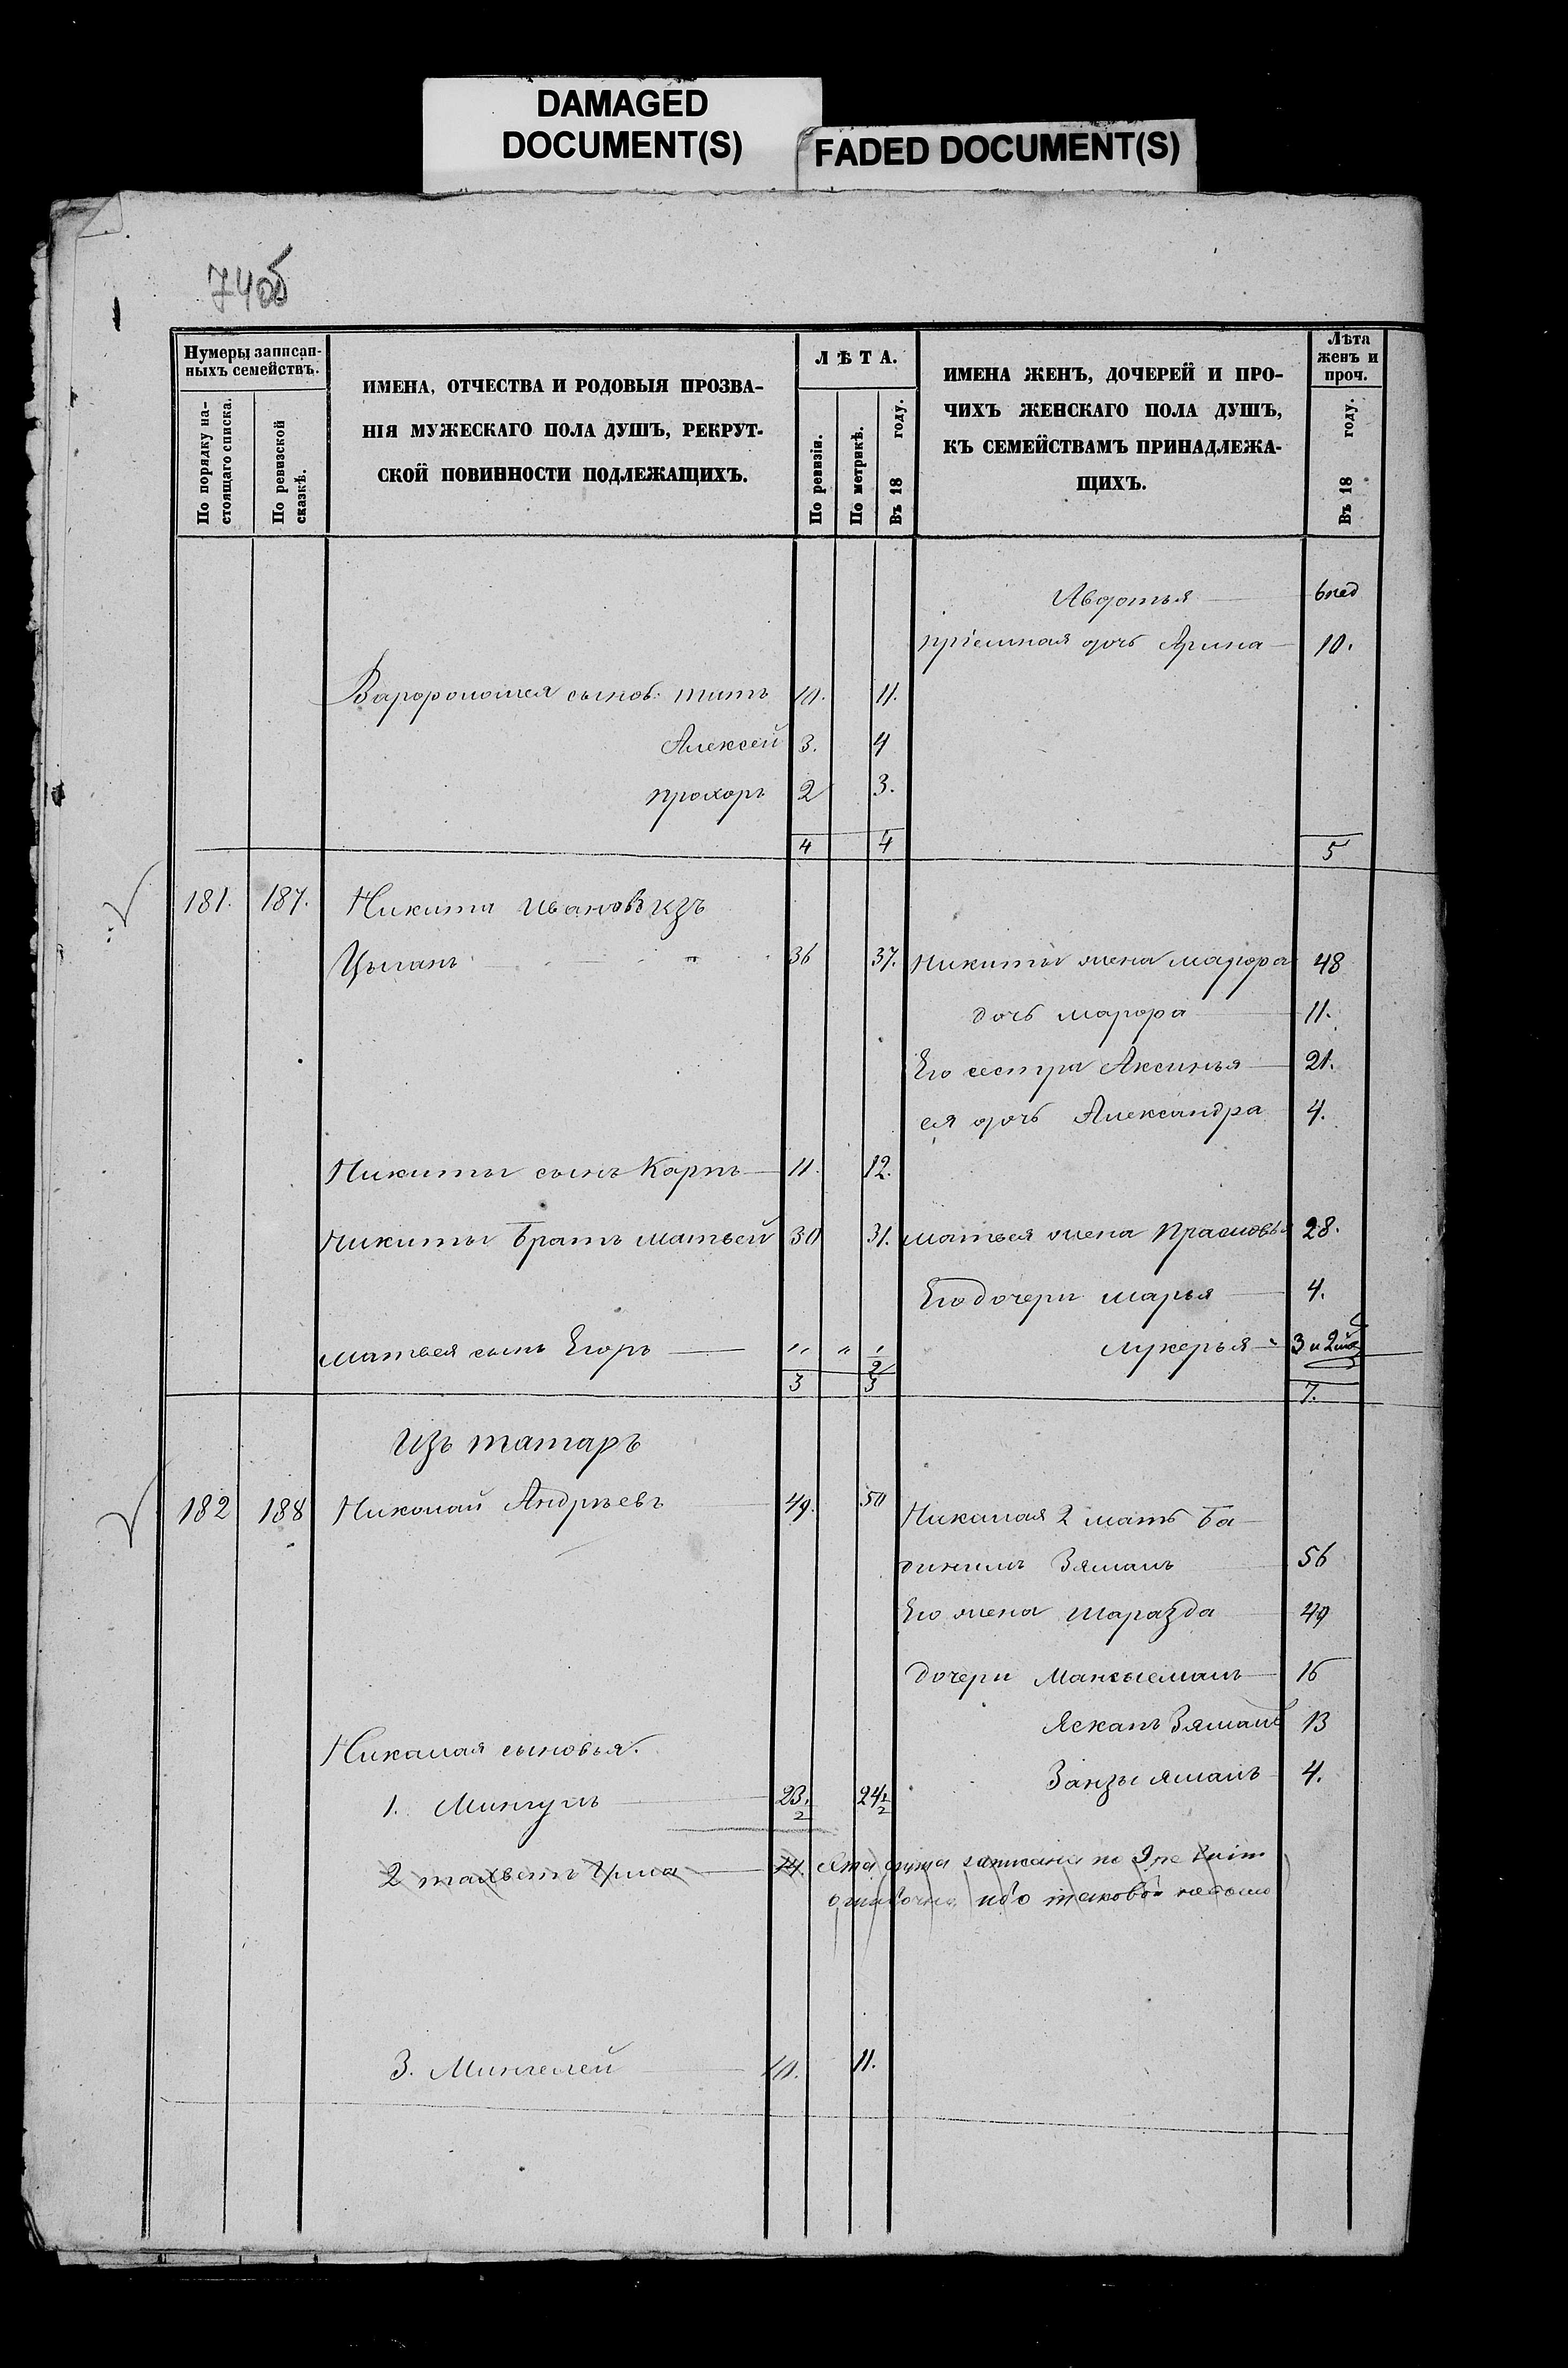 DAMAGED
DOCUMENT(S)
FADED DOCUMENT(S)
74об
Нумеры записан-
ныхъ семействъ.
По порядку на-
стоящаго списка.
По ревизской
сказкѣ.
ИМЕНА, ОТЧЕСТВА И РОДОВЫЯ ПРОЗВА-
НІЯ МУЖЕСКАГО ПОЛА ДУШЪ, РЕКРУТ-
СКОЙ ПОВИННОСТИ ПОДЛЕЖАЩИХЪ.
ЛѢТА.
По ревизіи.
По метрикѣ.
Въ 18 году.
ИМЕНА ЖЕНЪ, ДОЧЕРЕЙ И ПРО-
ЧИХЪ ЖЕНСКАГО ПОЛА ДУШЪ,
КЪ СЕМЕЙСТВАМЪ ПРИНАДЛЕЖА-
ЩИХЪ.
Лѣта
женъ и
проч.
Въ 18 году.
Авдотья 6 нед
пріемная дочь Арина 10.
сынов. титъ 10. 11.
Алексей 3. 4
прохоръ 2 3.
4 4 5
181. 187. Никита Ивановъ изъ
Цыганъ 36 37. никиты жена 48
дочь 11.
Его сестра Аксинья 21.
ея дочь Александра 4.
Никиты сынъ Карпъ 11. 12.
никиты братъ матвей 30 31. матвея жена Прасковья 28.
Его дочери марья 4.
матвея сынъ Егоръ " " 1/2 лукерья 3 и 2
3 3 7.
Изъ татаръ
182 188 Николай Андреевъ 49. 50 Николая 2 мать Ба-
56
Его жена Шаразда 49
дочери 16
13
Никалая сыновья.
4.
1. Мингулъ 23 1/2 24 1/2
2 14. Эта душа записана по 9 ре
ошибочно, ибо таковой небыло
3. Мингелей 10. 11.